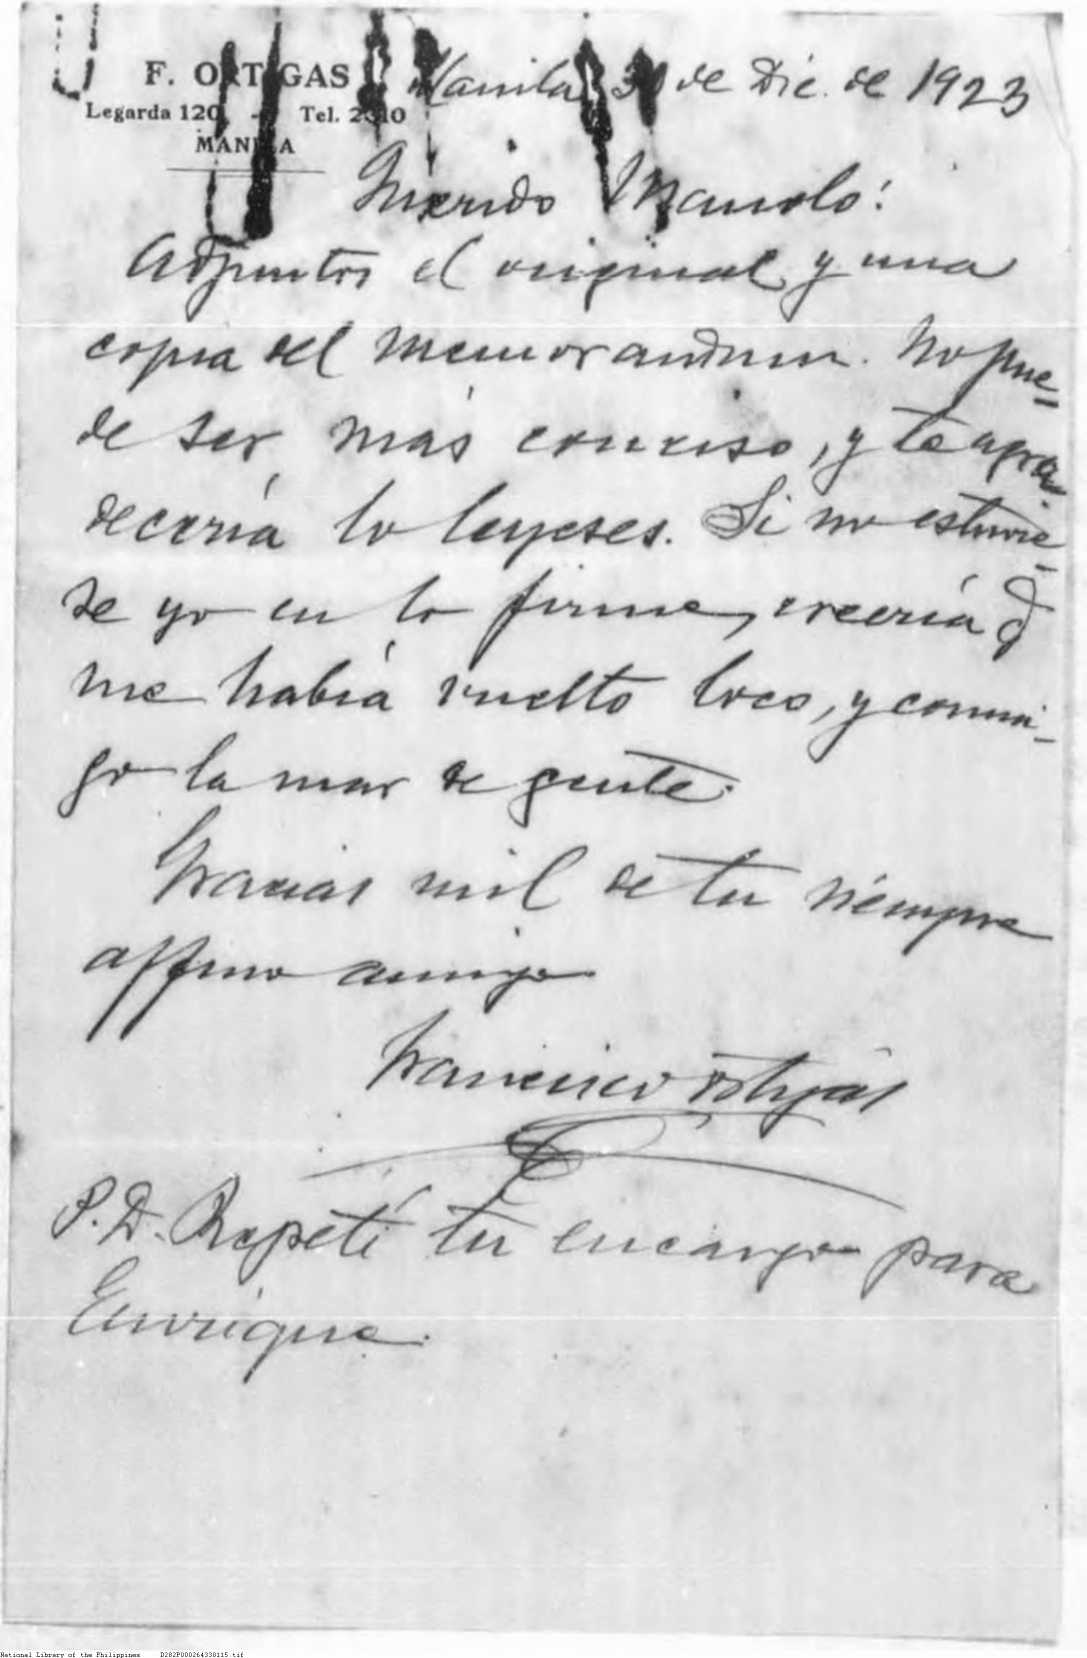 F. ORTIGAS
Legarda 120, - Tel. 2310
MANILA
Manila, de Dic. de 1923
Querido Manolo:
Adjuntos el original y una
copia del memorandum. No pue-
de ser más conciso, y te agra-
decería lo leyeses. Si no estuvie-
se yo en lo firme, creería q̃
me había vuelto loco, y conmi-
go la mar de gente.
Gracias mil de tu siempre
affmo amigo
Francisco Ortigas
P.D. Repetí tu encargo para
Enrique.
National Library of the Philippines D282P000264338115.tif